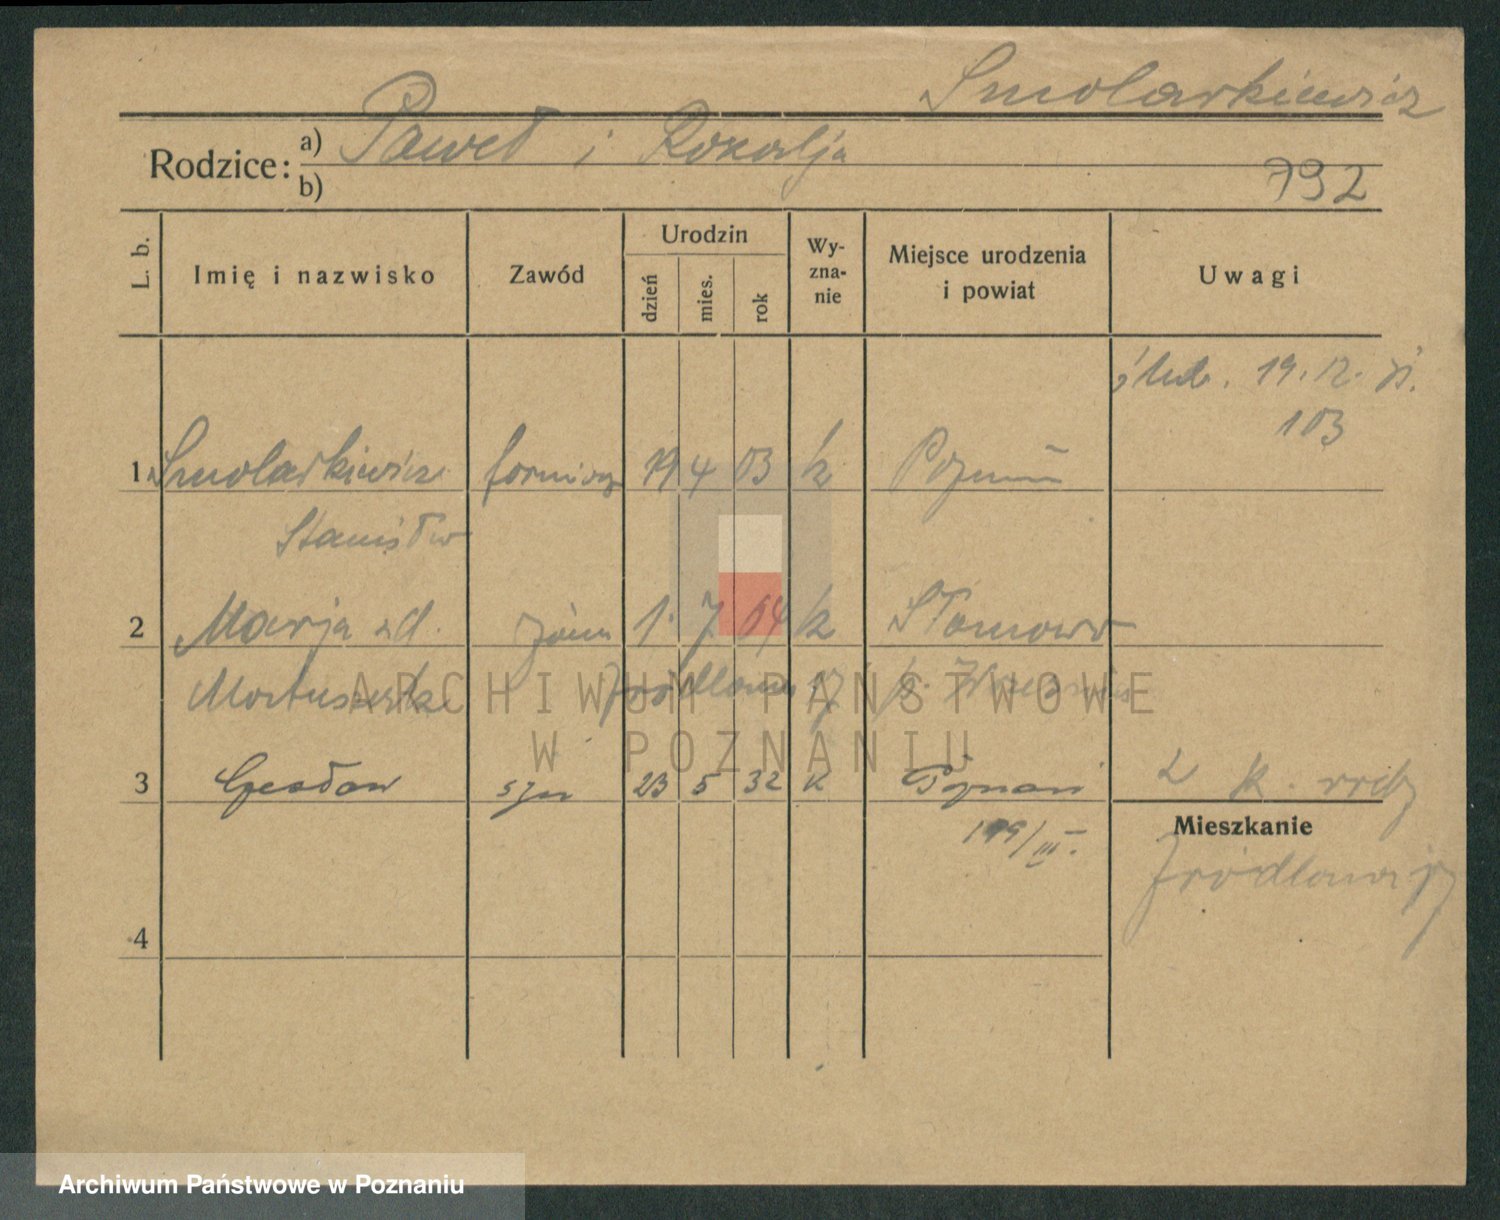 Smolarkiewicz
Rodzice: a) Paweł i Rozalja
b)
792
L. b.
Imię i nazwisko
Zawód
Urodzin
dzień
mies.
rok
Wy-
zna-
nie
Miejsce urodzenia
i powiat
Uwagi
19. 12.
103
1 Smolarkiewicz formierz 19 4 03 k Poznań
Stanisław
2 Marja zd. żona 1. 7 04 k
k
3 Czesław syn 23 5 32 k Poznań
2 k.
199/III.
Mieszkanie
Źródlana 17
4
ARCHIWUM PAŃSTWOWE
W POZNANIU
Archiwum Państwowe w Poznaniu